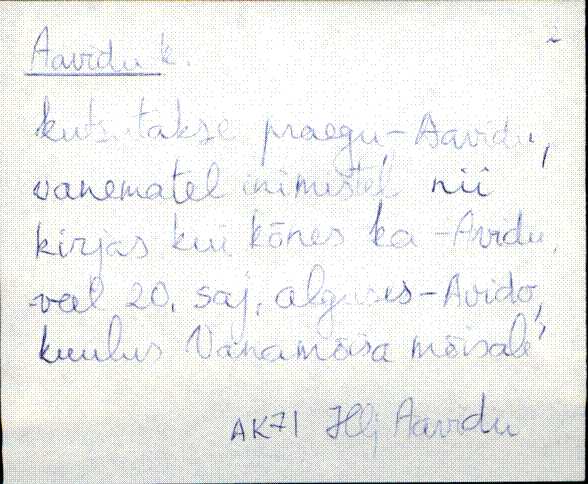 Aavidu k.
kutsutakse praegu - Aavidu,
vanematel inimestel nii
kirjas kui kõnes ka - Avidu,
veel 20. saj. alguses - Avido,
kuulus Vanamõisa mõisale
AK71 Hlj Aavidu